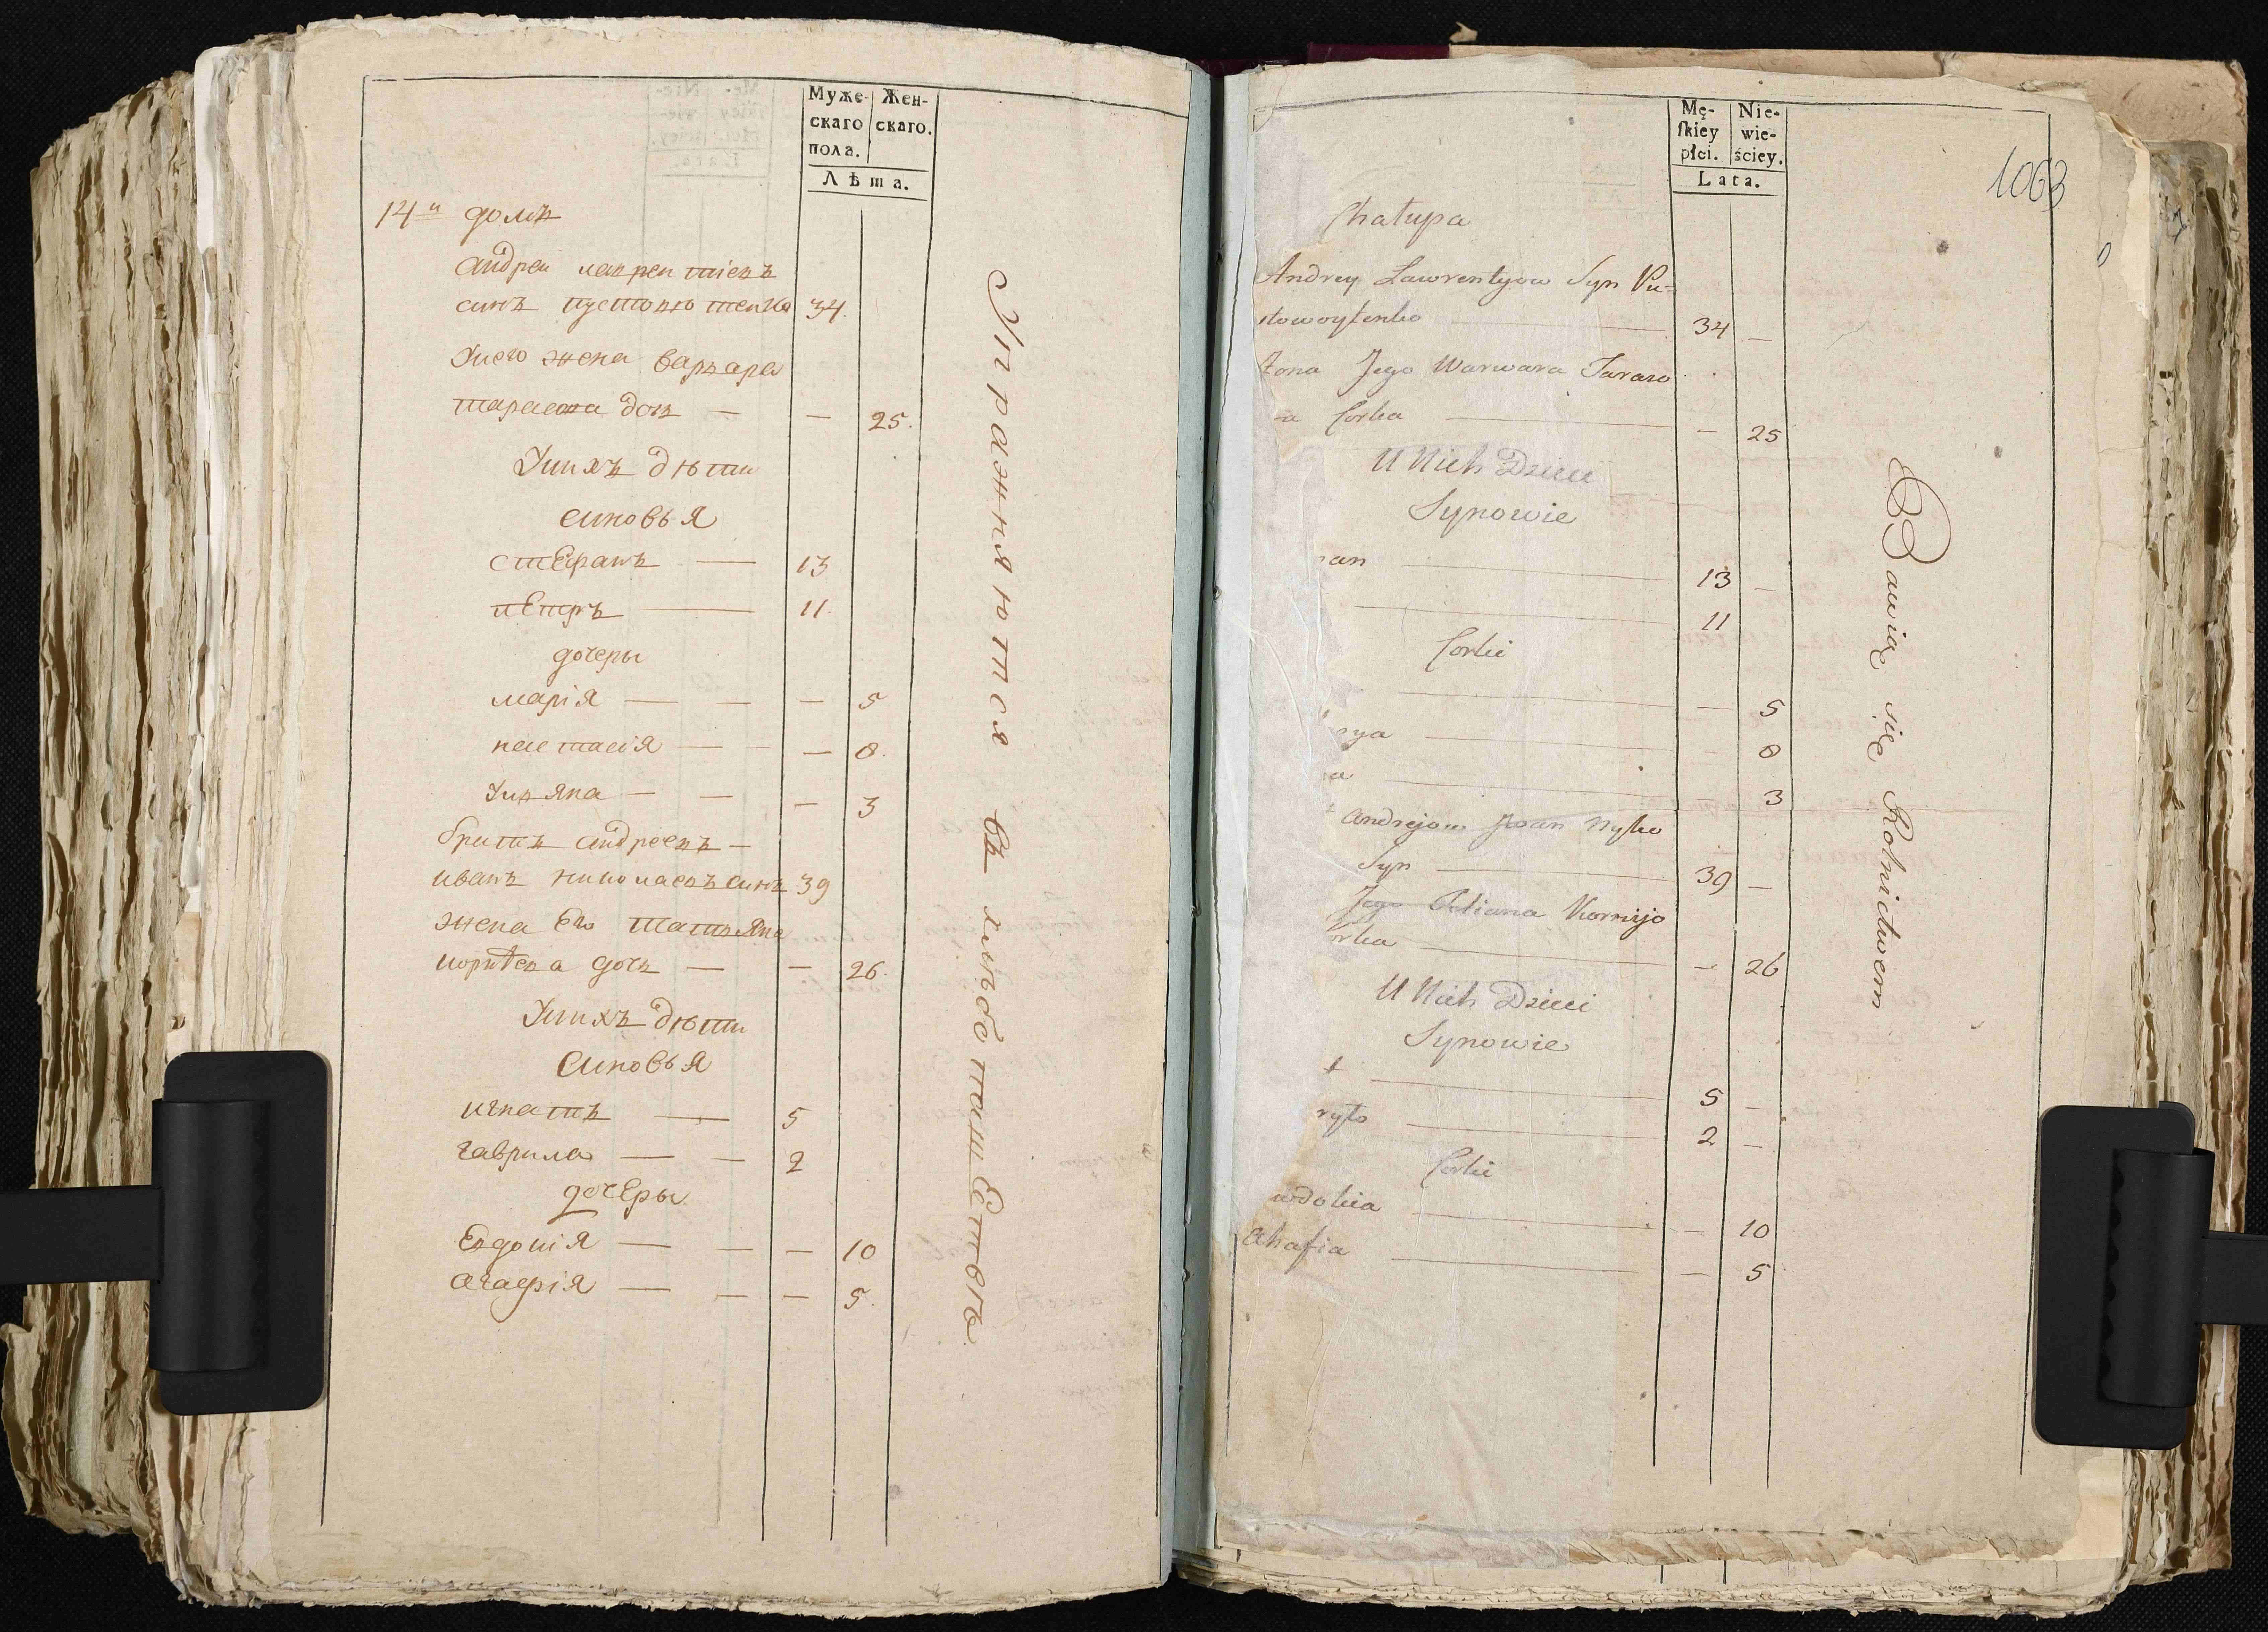 Муже- Жен-
скаго скаго.
пола.
Лѣта.
14й домъ
андреи лаврентіевъ
синъ пустовютенко 34.
Унего жена варвара
тарасова доч — — 25.
Унихъ дѣти
синовья
стЕфанъ — 13
пЕтръ — 11.
дочеры
марія — — — 5
настасія — — — 8.
Уляна — — — 3
братъ андреевъ —
иванъ николаевъ синъ 39
жена Его татьяна
корнѣева дочъ — — 26.
Унихъ дѣти
Синовья
игнатъ — 5
гаврила — — 2
дочЕры
Евдокія — — — 10
агафія — — — 5.
Упражняются въ хлѣбопашЕствѣ.
Mę- Nie-
skiey wie-
płci. ściey.
Lata.
1063
Chałupa
Andrey Ławrentyow Syn Pu=
stowoytenko — 34 —
Żona Jego Warwara Taraso
a Corka — — 25
U Nich Dzieci
Synowie
an — 13 —
— 11
Corki
— — 5
ya — — 8
a — — 3
Andrejow Jwan Nyko
Syn — 39 —
Jego Tetiana Kornijo
orka — — 26
U Nich Dzieci
Synowie
t — 5 —
ryło — 2 —
Corki
wdokia — — 10
Ahafia — — 5
Bawią się Rolnictwem